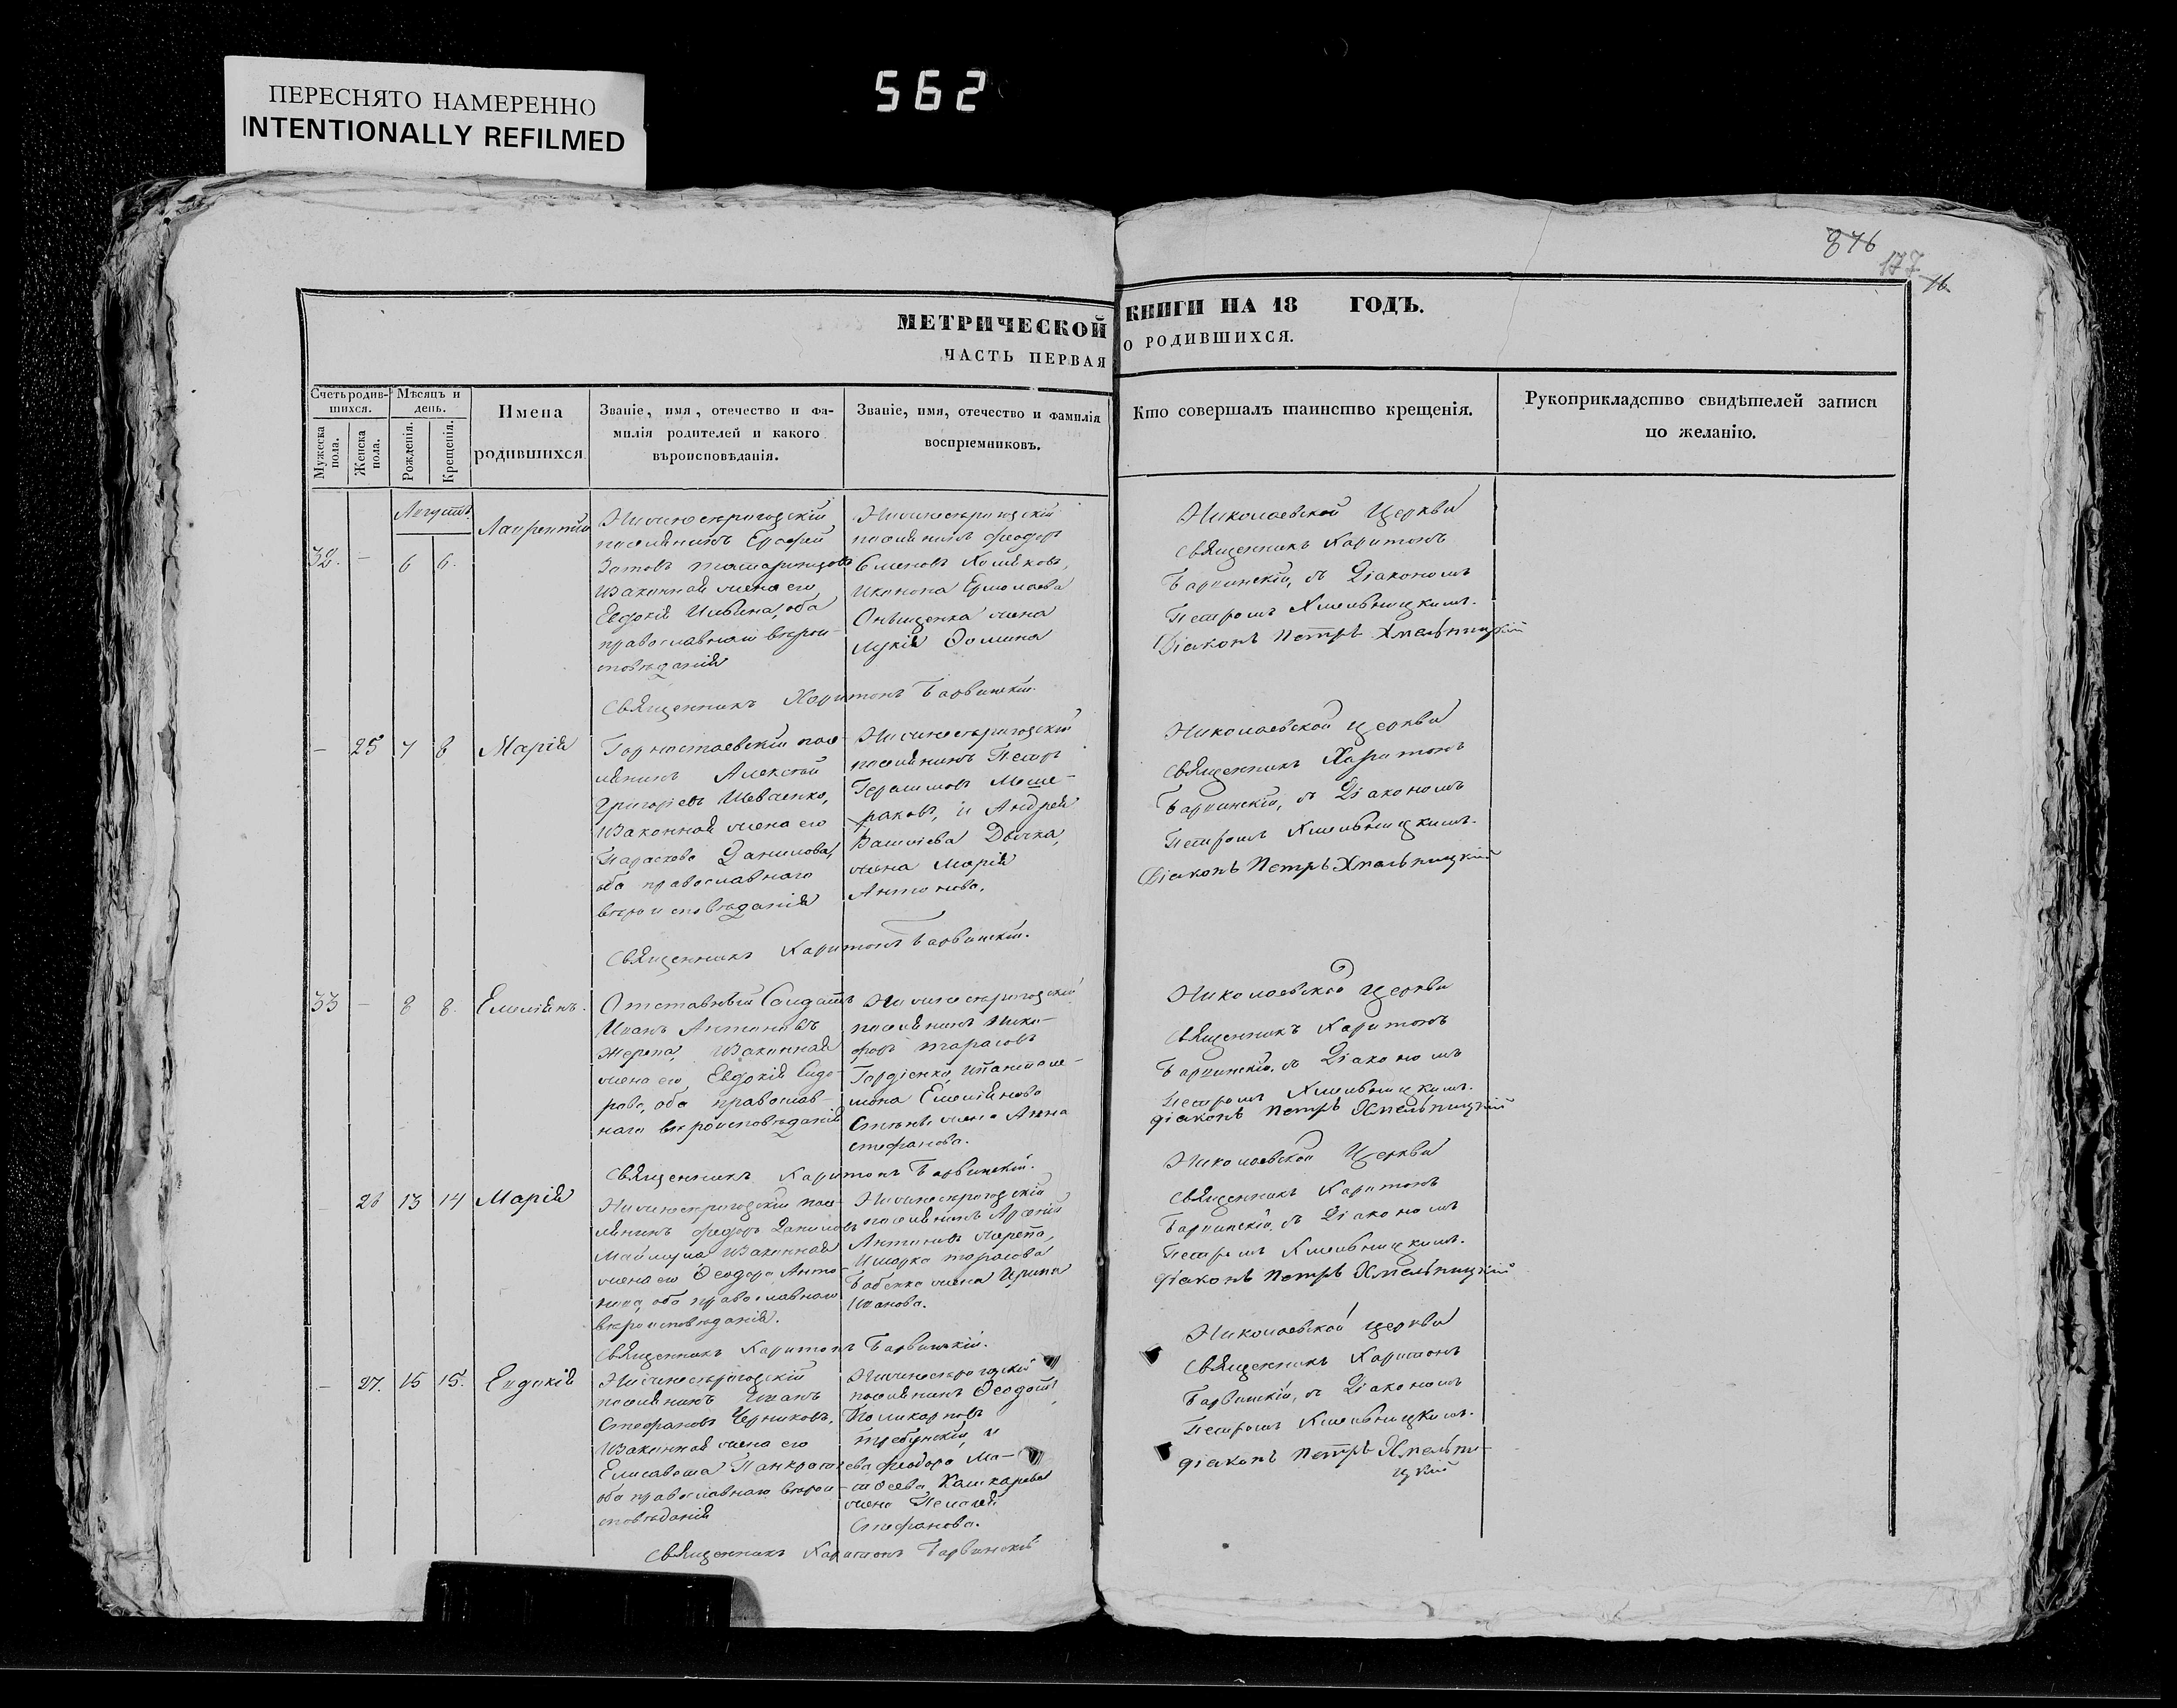 ПЕРЕСНЯТО НАМЕРЕННО
INTENTIONALLY REFILMED
562
876
177
76
МЕТРИЧЕСКОЙ КНИГИ НА 18 ГОДЪ.
ЧАСТЬ ПЕРВАЯ О РОДИВШИХСЯ.
Счетъ родившихся.
Мужеска пола.
Женска пола.
Мѣсяцъ и день.
Рожденія.
Крещенія.
Имена родившихся
Званіе, имя, отечество и фамилія родителей и какого вѣроисповѣданія.
Званіе, имя, отечество и фамилія воспріемниковъ.
Кто совершалъ таинство крещенія.
Рукоприкладство свидѣтелей записи по желанію.
Августъ
32. - 6 6.
Лаврентій
Нижнесѣрогозскій
поселянинъ Ерофей
Зотовъ
Изаконная жена его
Евдокія Ильина, оба
православнаго вѣрои-
сповѣданія
Нижнесѣрогозскій
поселянинъ Феодоръ
Семеновъ Хомяковъ,
Иконона Ермолаева
Онищенка жена
Лукія Фомина
Николаевской Церкви
Священникъ Харитонъ
Барвинскій, съ Діакономъ
Петромъ Хмельницкимъ.
Діаконъ Петръ Хмельницкій
Священникъ Харитонъ Барвинскій.
- 25 7 8 Марія
Горностаевскій посе-
лянинъ Алексѣй
Григорьевъ Шевченко,
Изаконная жена его
Параскева Данилова,
оба православнаго
вѣроисповѣданія
Нижнесѣрогозскій
поселянинъ Петръ
Герасимовъ Меще-
ряковъ, и Андрея
Васильева Дычка,
жена Марія
Антонова.
Николаевской Церкви
Священникъ Харитонъ
Барвинскій, съ Діакономъ
Петромъ Хмельницкимъ.
Діаконъ Петръ Хмельницкій
Священникъ Харитонъ Барвинскій.
33 - 8 8. Емеліянъ.
Отставный Солдатъ
Иванъ Антоновъ
Жерепа, Изаконная
жена его, Евдокія Сидо-
рова, оба православ-
наго вѣроисповѣданія
Нижнесѣрогозскій
поселянинъ Ники-
форъ Тарасовъ
Гордіенко, Ипантеле-
мона Емеліянова
жена Анна
Стефанова.
Николаевской Церкви
Священникъ Харитонъ
Барвинскій, съ Діакономъ
Петромъ Хмельницкимъ.
діаконъ Петръ Хмельницкій
Священникъ Харитонъ Барвинскій.
26 13 14 Марія
Нижнесѣрогозскій посе-
лянинъ Федоръ Даниловъ
Изаконная
жена его Феодора Анто-
нова, оба православнаго
вѣроисповѣданія.
Нижнесѣрогозскій
поселянинъ Арсеній
Антоновъ Жерепа,
Имарка Тарасова
Бабенка жена Ирина
Иванова.
Николаевской Церкви
Священникъ Харитонъ
Барвинскій, съ Діакономъ
Петромъ Хмельницкимъ.
діаконъ Петръ Хмельницкій
Священникъ Харитонъ Барвинскій.
- 27. 15 15. Евдокія
Нижнесѣрогозскій
поселянинъ Иванъ
Стефановъ Черниковъ,
Изаконная жена его
Елисавета Панкратьева
оба православнаго вѣрои-
сповѣданія
Нижнесѣрогозскій
поселянинъ Феодотъ
Поликарповъ
Требунскій, и
Феодора Ма-
тѳеева Кашкарева
жена Пелагея
Стефанова.
Николаевской Церкви
Священникъ Харитонъ
Барвинскій, съ Діакономъ
Петромъ Хмельницкимъ.
діаконъ Петръ Хмельни-
цкій
Священникъ Харитонъ Барвинскій